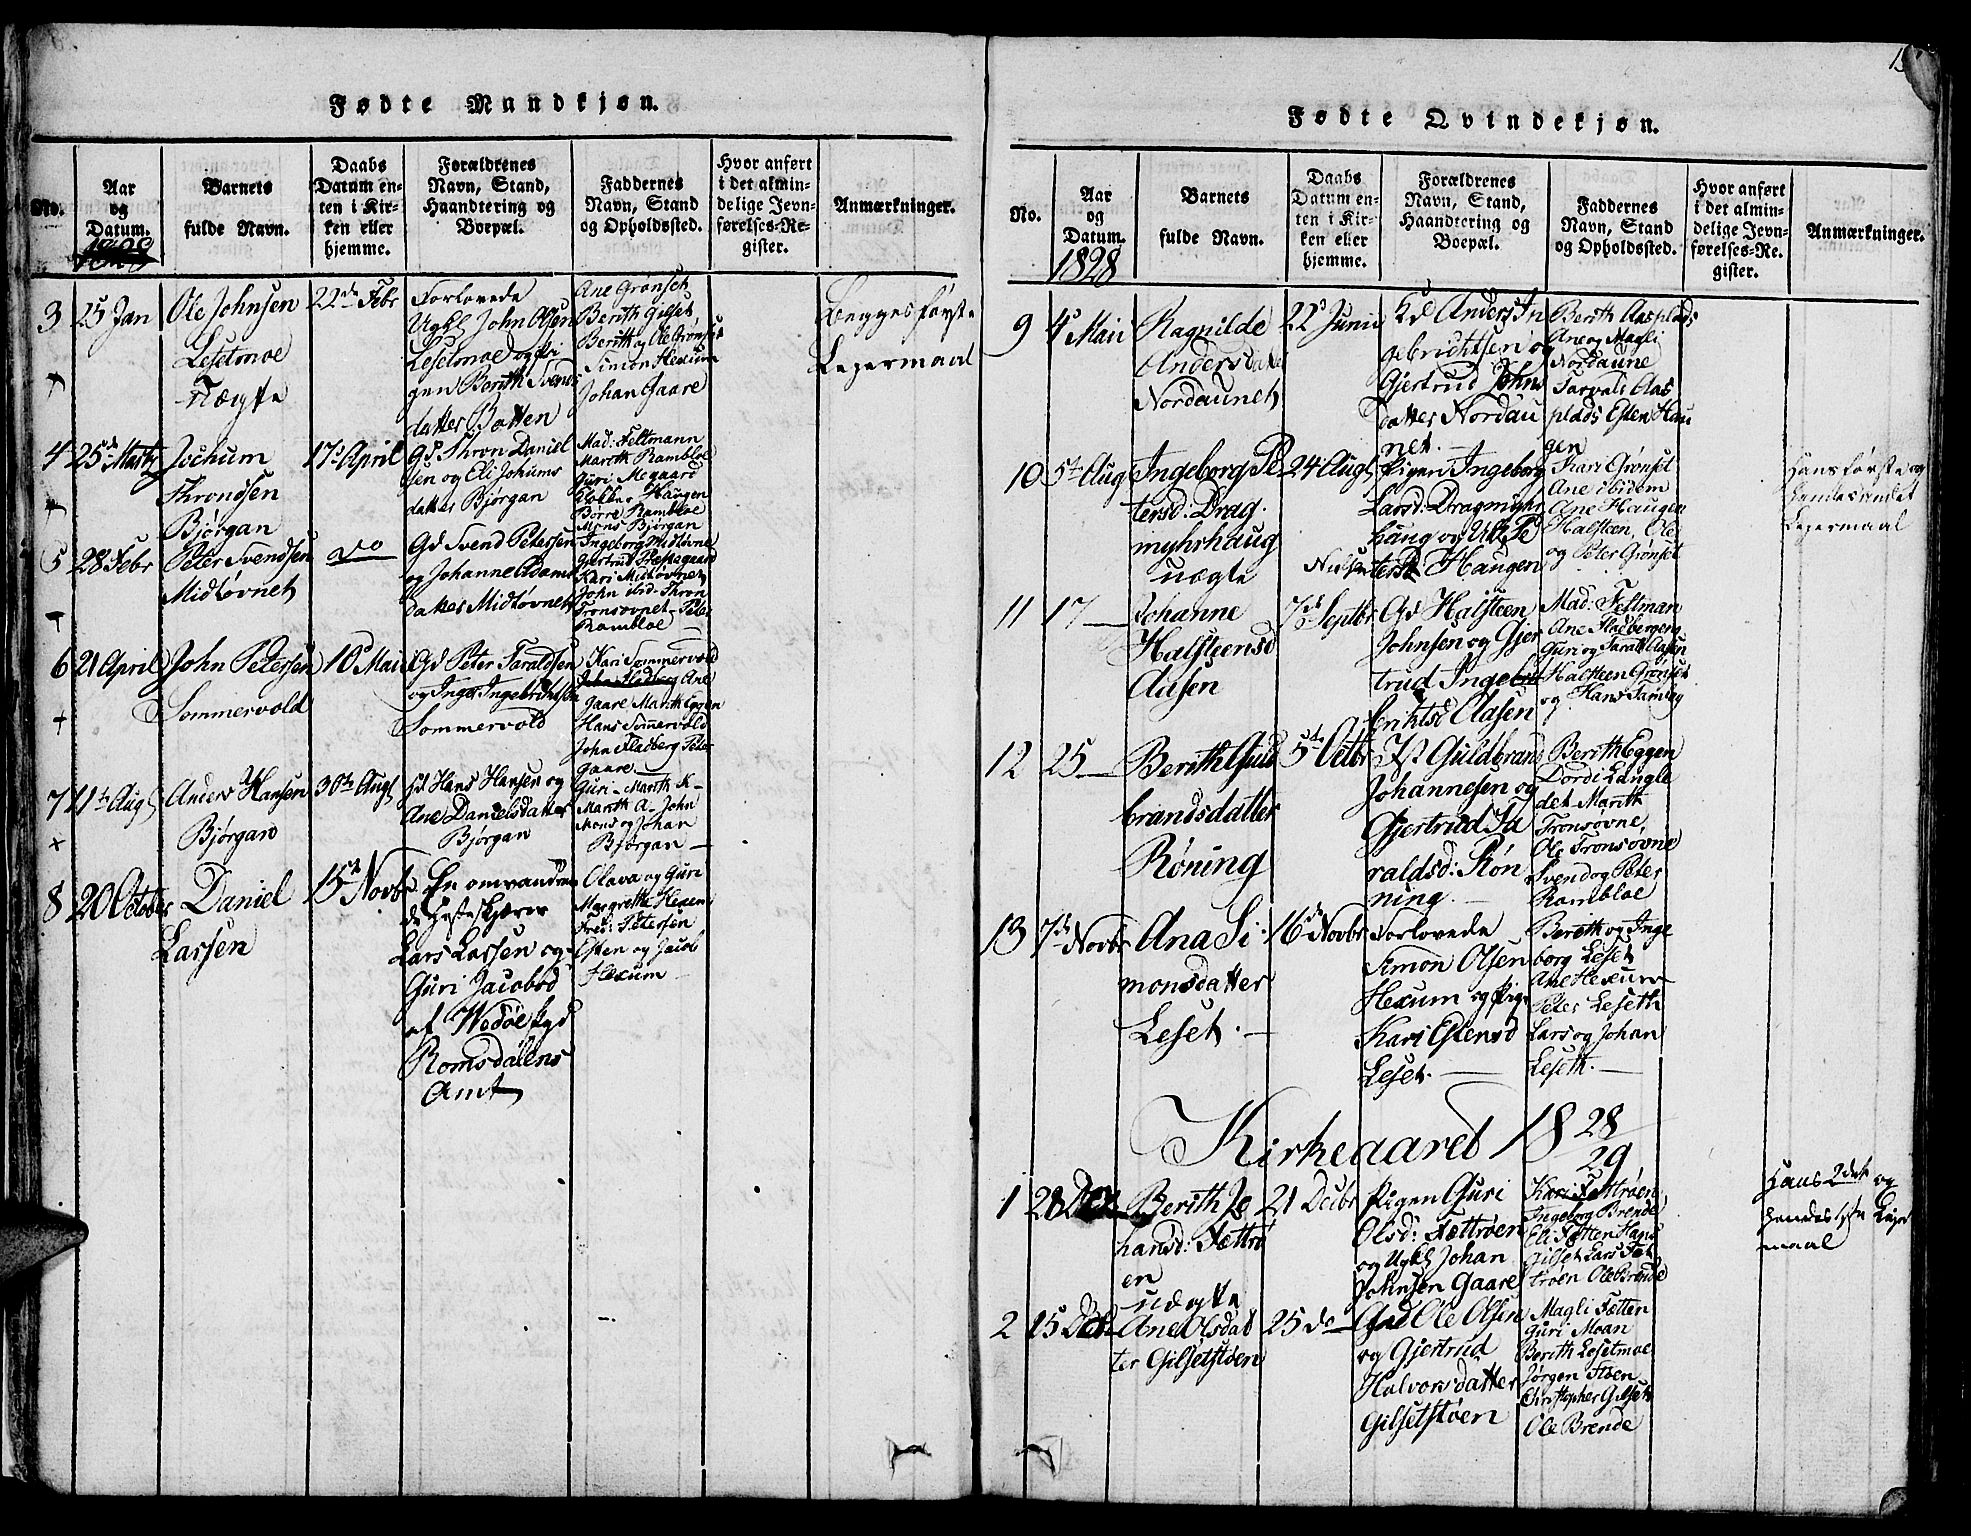 Fødte Mandkjøn.
No.
Aar
og
Datum.
1828
Barnets
fulde Navn.
Daabs
Datum en-
ten i Kir-
ken eller
hjemme.
Forældrenes
Navn, Stand,
Haandtering og
Boepæl.
Faddernes
Navn, Stand
og Opholdssted.
Hvor anført
i det almin-
delige Jevn-
førelses-Re-
gister.
Anmærkninger.
3
25 Jan
Ole Johnsen
Lesetmoe
uægte
22de Febr
Forlovede
Ugkl John Olsen
Lesetmoe og Pi
gen Berith Svends
datter Botten
Ane Grønset
Berith Gilset
Berith og Ole Grønset
Simon Hexum
Johan Gaare
Begges første
Legermaal
4
25de Martz
Jochum
Throndsen
Bjørgan
17de April
Gd Thron Daniel
sen og Eli Johums
datter Bjørgan
Mad: Feltmann
Marith Rambloe
Guri Megaard
Haugen
Børre Rambloe
Mons Bjørgan
5
28 Febr
Peter Svendsen
Midtøvnet
do
Gd Svend Petersen
og Johanne Adams
datter Midtøvnet
Ingeborg Midtøvne
Gjertrud Præstegaard
Kari Midtøvnet
John ibid. Thron
Tronsovnet Peter
Rambloe
6
21 April
John Petersen
Sommervold
10de Mai
Gd Peter Taraldsen
og Inger Ingebrichtsen
Sommervold
Kari Sommervold
John Fladberg Ane
Gaare Marith Eggen
Hans Sommervold
John Fladberg Peter
Gaare
7
11te Augs
Anders Hansen
Bjørgan
30te Augs
Gd Hans Hansen og
Ane Danielsdatter
Bjørgan
Guri - Marith H-
Marith A- John
Mons og Johan
Bjørgan
8
20 October
Daniel
Larsen
15de Novbr
En omvandren
de Hesteskjærer
Lars Larsen og
Guri Jacobsd
af Wedøe Pgd
Romsdalens
Amt
Olava og Guri
Margrethe Hexem
Fred: Petersen
Esten og Jacob
Hexum
Fødte Qvindekjøn.
No.
Aar
og
Datum.
1828
Barnets
fulde Navn.
Daabs
Datum en-
ten i Kir-
ken eller
hjemme.
Forældrenes
Navn, Stand,
Haandtering og
Boepæl.
Faddernes
Navn, Stand
og Opholdssted.
Hvor anført
i det almin-
delige Jevn-
førelses-Re-
gister.
Anmærkninger.
9
4de Mai
Ragnilde
Andersdatter
Nordaunet
22de Junii
Gd Anders In
gebrichtsen og
Gjertrud Johns
datter Nordau
net.
Berith Aasplads
Ane og Magli
Nordaune
Tarvald Aas
plads Esten Hau
gen
10
5te Aug
Ingeborg Pe
tersd: Drag
myhrhaug
uægte
24de Augs
Pigen Ingeborg
Larsd: Dragmyhr
haug og Ulk Pe
Haugen
Kari Grønset
Ane ibidem
Ane Haugen
Halsteen, Ole
og Peter Grønset
Hans første og
hendes andet
Legermaal
11
17
Johanne
Halsteensd
Aasen
7de Septbr
Gd Halsteen
Johnsen og Gjer
trud Inge
brichtsd Aasen
Mad: Feltman
Ane Fladbergeng
Guri og Tarald Aasen
Halsteen Grønset
og Hans Samdag
12
25
Berith Guld
brandsdatter
Røning
5te Octbr
Ist Guldbrand
Johannesen og
Gjertrud Ta
raldsd: Røn
ning.
Berith Eggen
Dordi Langle
det Marith
Tronsøvne
Ole Tronsøvne
Svend og Peter
Rambloe
13
7de Novbr
Ana Si
monsdatter
Leset.
16de Novbr
Forlovede
Simon Olsen
Hexum og Pige
Kari Estensd
Leset.
Berith og Inge
borg Leset
Ane Hexum
Peter Leseth
Lars og Johan
Leseth.
Kirkeaaret 1828/29
1
28
Berith Jo
hansd: Fættrø
en
uægte
21 Decbr
Pigen Guri
Olsd: Fættrøen
og Ugkl Johan
Johnsen Gaare
Kari Fættrøen
Ingeborg Brende
Eli Fætten Hans
Gilset Lars Fæt
trøen Ole Brende
Hans 2det og
hendes 1ste Leger
maal
2
15 Decbr
Ane Olsdat
ter Gilsetstøen
25 do
Gd Ole Olsen
og Gjertrud
Halvorsdatter
Gilsetstøen
Magli Fætten
Guri Moan
Berith Lesetmoe
Jørgen Floen
Christopher Gilset
Ole Brende